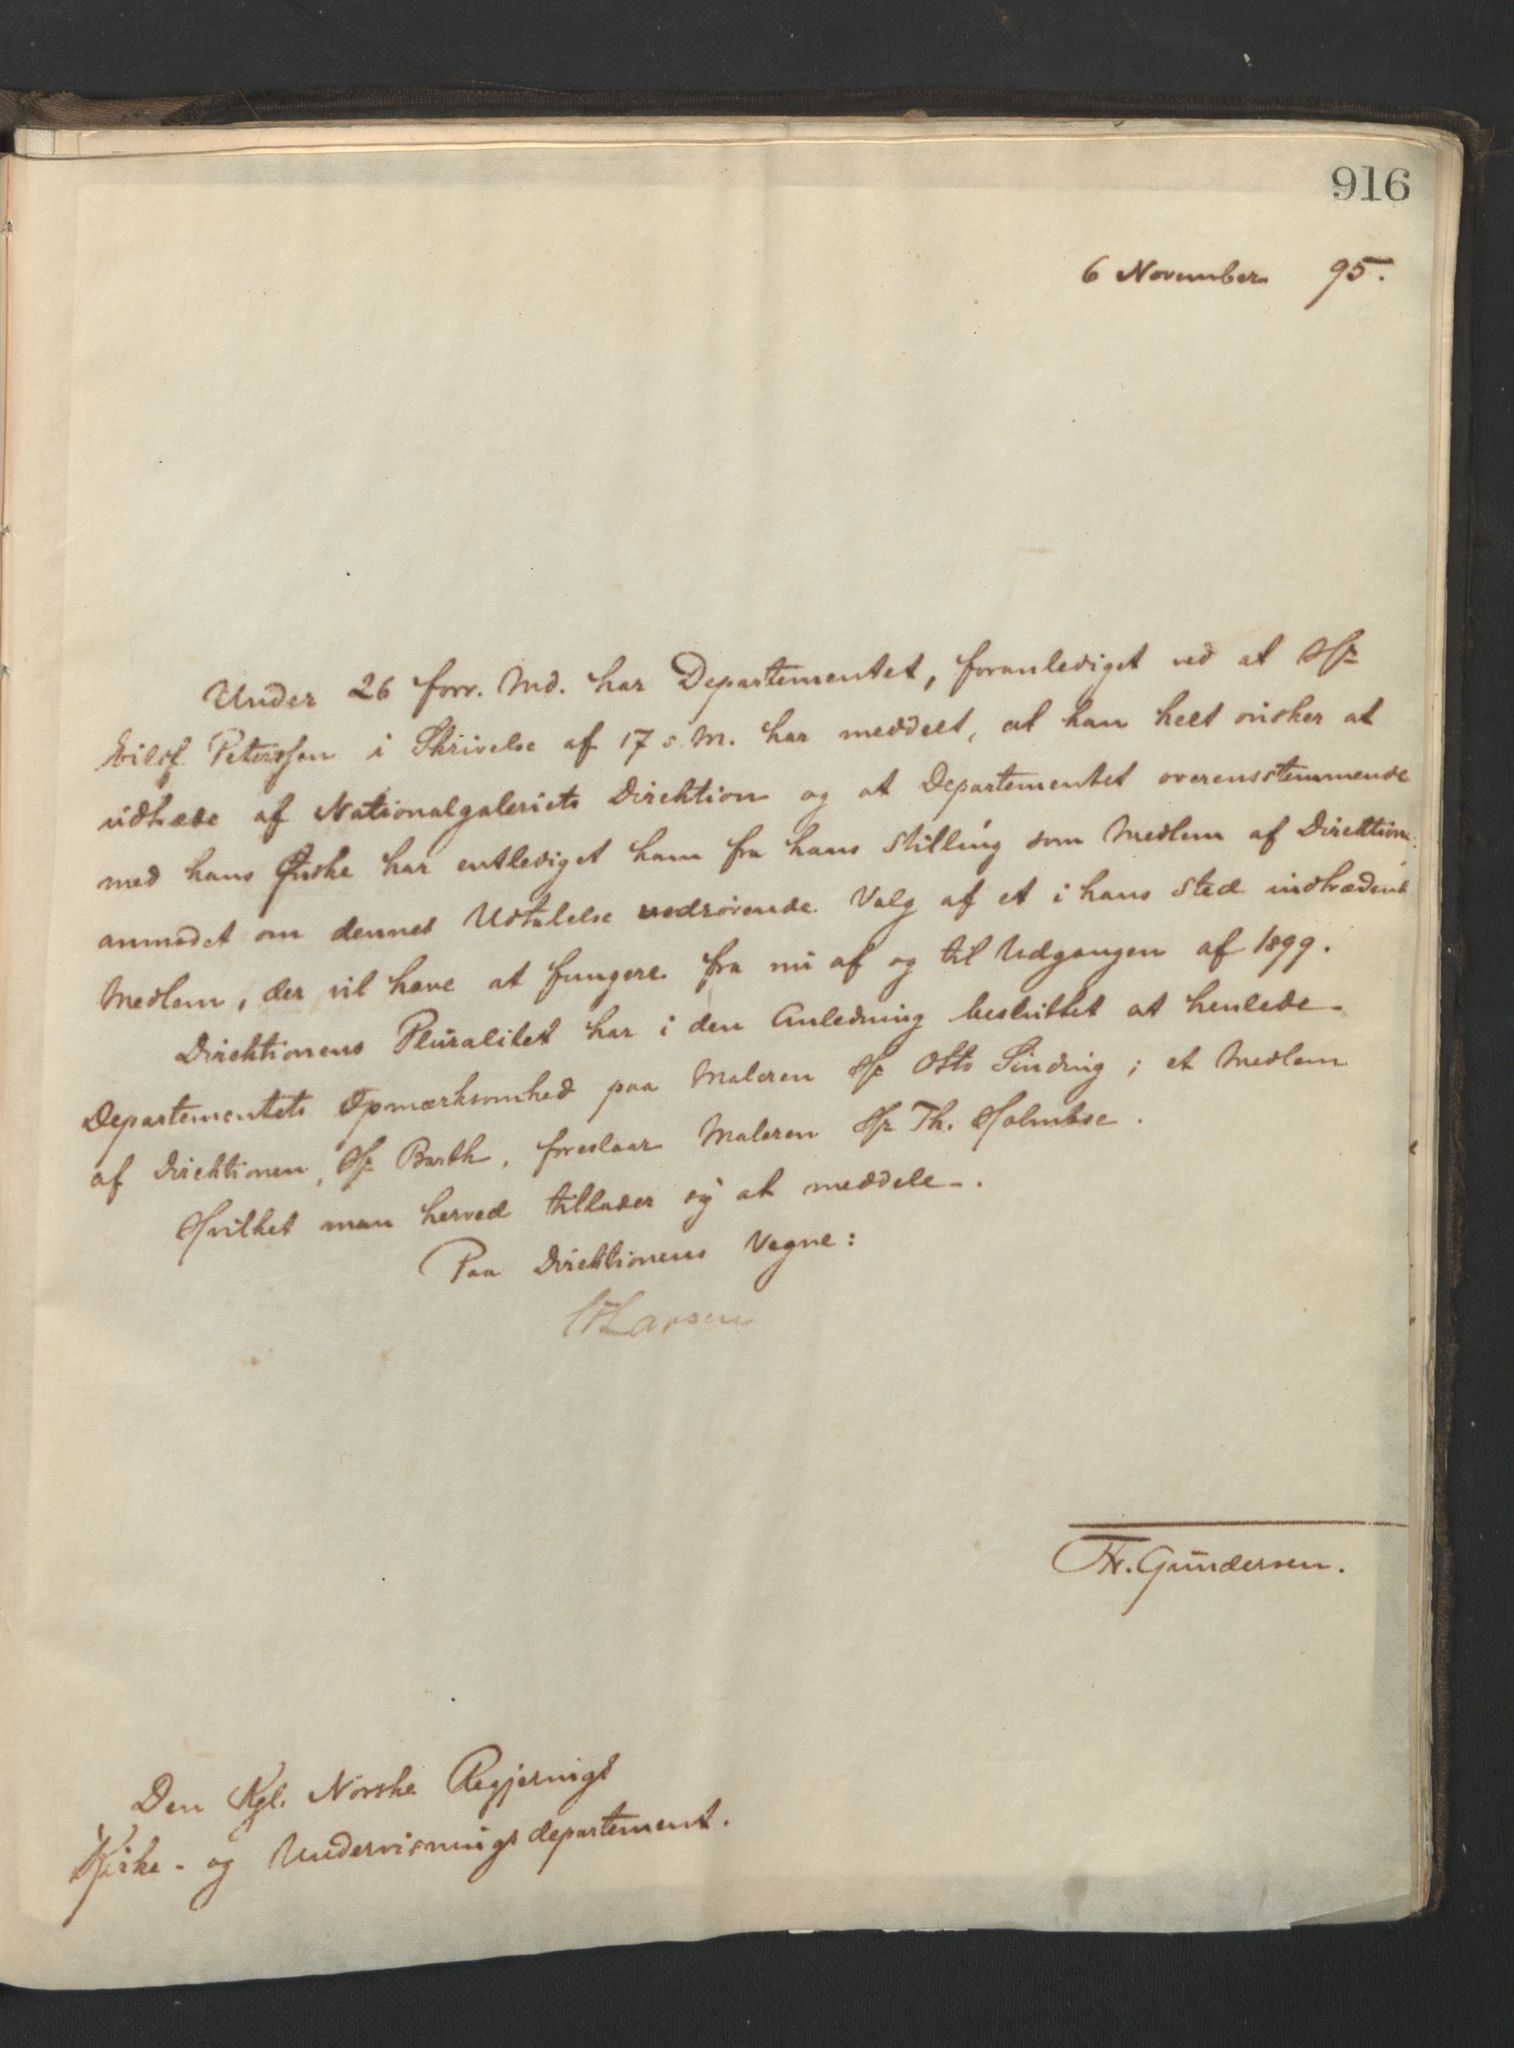 916
6 November 95.
Under 26 forr. Md. har Departementet, foranlediget ved at Hr
Eilif Peterssen i Skrivelse af 17 s. M. har meddelt, at han helt ønsker at
udtræde af Nationalgaleriets Direktion og at Departementet overensstemmende
med hans Ønske har entlediget ham fra hans Stilling som Medlem af Direktion.
anmodet om dennes Udtalelse vedrørende Valg af et i hans Sted indtrædende
Medlem, der vil have at fungere fra nu af og til Udgangen af 1899.
Direktionens Pluralitet har i den Anledning besluttet at henlede
Departementets Opmærksomhed paa Maleren Hr Otto Sinding; et Medlem
af Direktionen, Hr Barth, foreslaar Maleren Hr Th. Holmboe.
Hvilket man herved tillader sig at meddele.
Paa Direktionens Vegne:
Larsen
Fr. Gundersen.
Den Kgl. Norske Regjerings
Kirke- og Undervisningsdepartement.